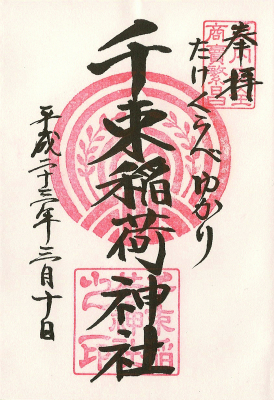 奉拝
商売繁昌
たけくらべゆかり
千束稲荷神社
平成二十三年三月十日
千束稲荷神社之印